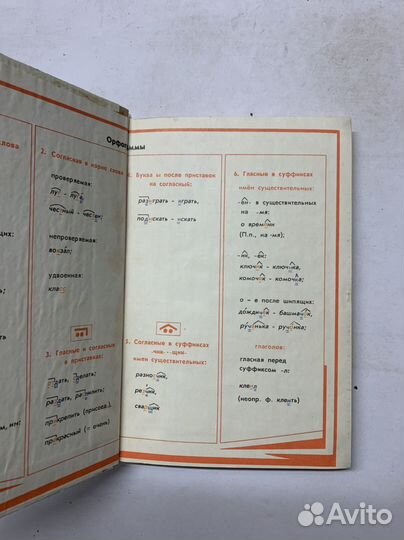 лова
щих:
м, нм;
Орфограммы
2. Согласная в корне слова
проверяемая:
лут - луга
честный - честен;
непроверяемая:
вокзал;
удвоенная:
класс
3. Гласные и согласные
в приставках:
прикрепить (присоед.),
прекрасный (= очень)
4. Буква ы после приставок
на согласный:
разыграть - играть,
подыскать - искать
5. Согласные в суффиксах
-чик-, -щик-
имен существительных:
разносчик,
резчик,
сварщик
6. Гласные в суффиксах
имён существительных:
-ен- в существительных
на -мя:
о времени
(П.п., на -мя);
-ик, -ек:
ключик - ключика,
комочек - комочка;
о - е после шипящих:
дождичек - башмачок,
рученька - ручонка;
глаголов:
гласная перед
суффиксом -л:
клеил
(неопр. ф. клеить)
Avito